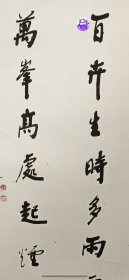 百卉生時多雨
萬峯高處起煙